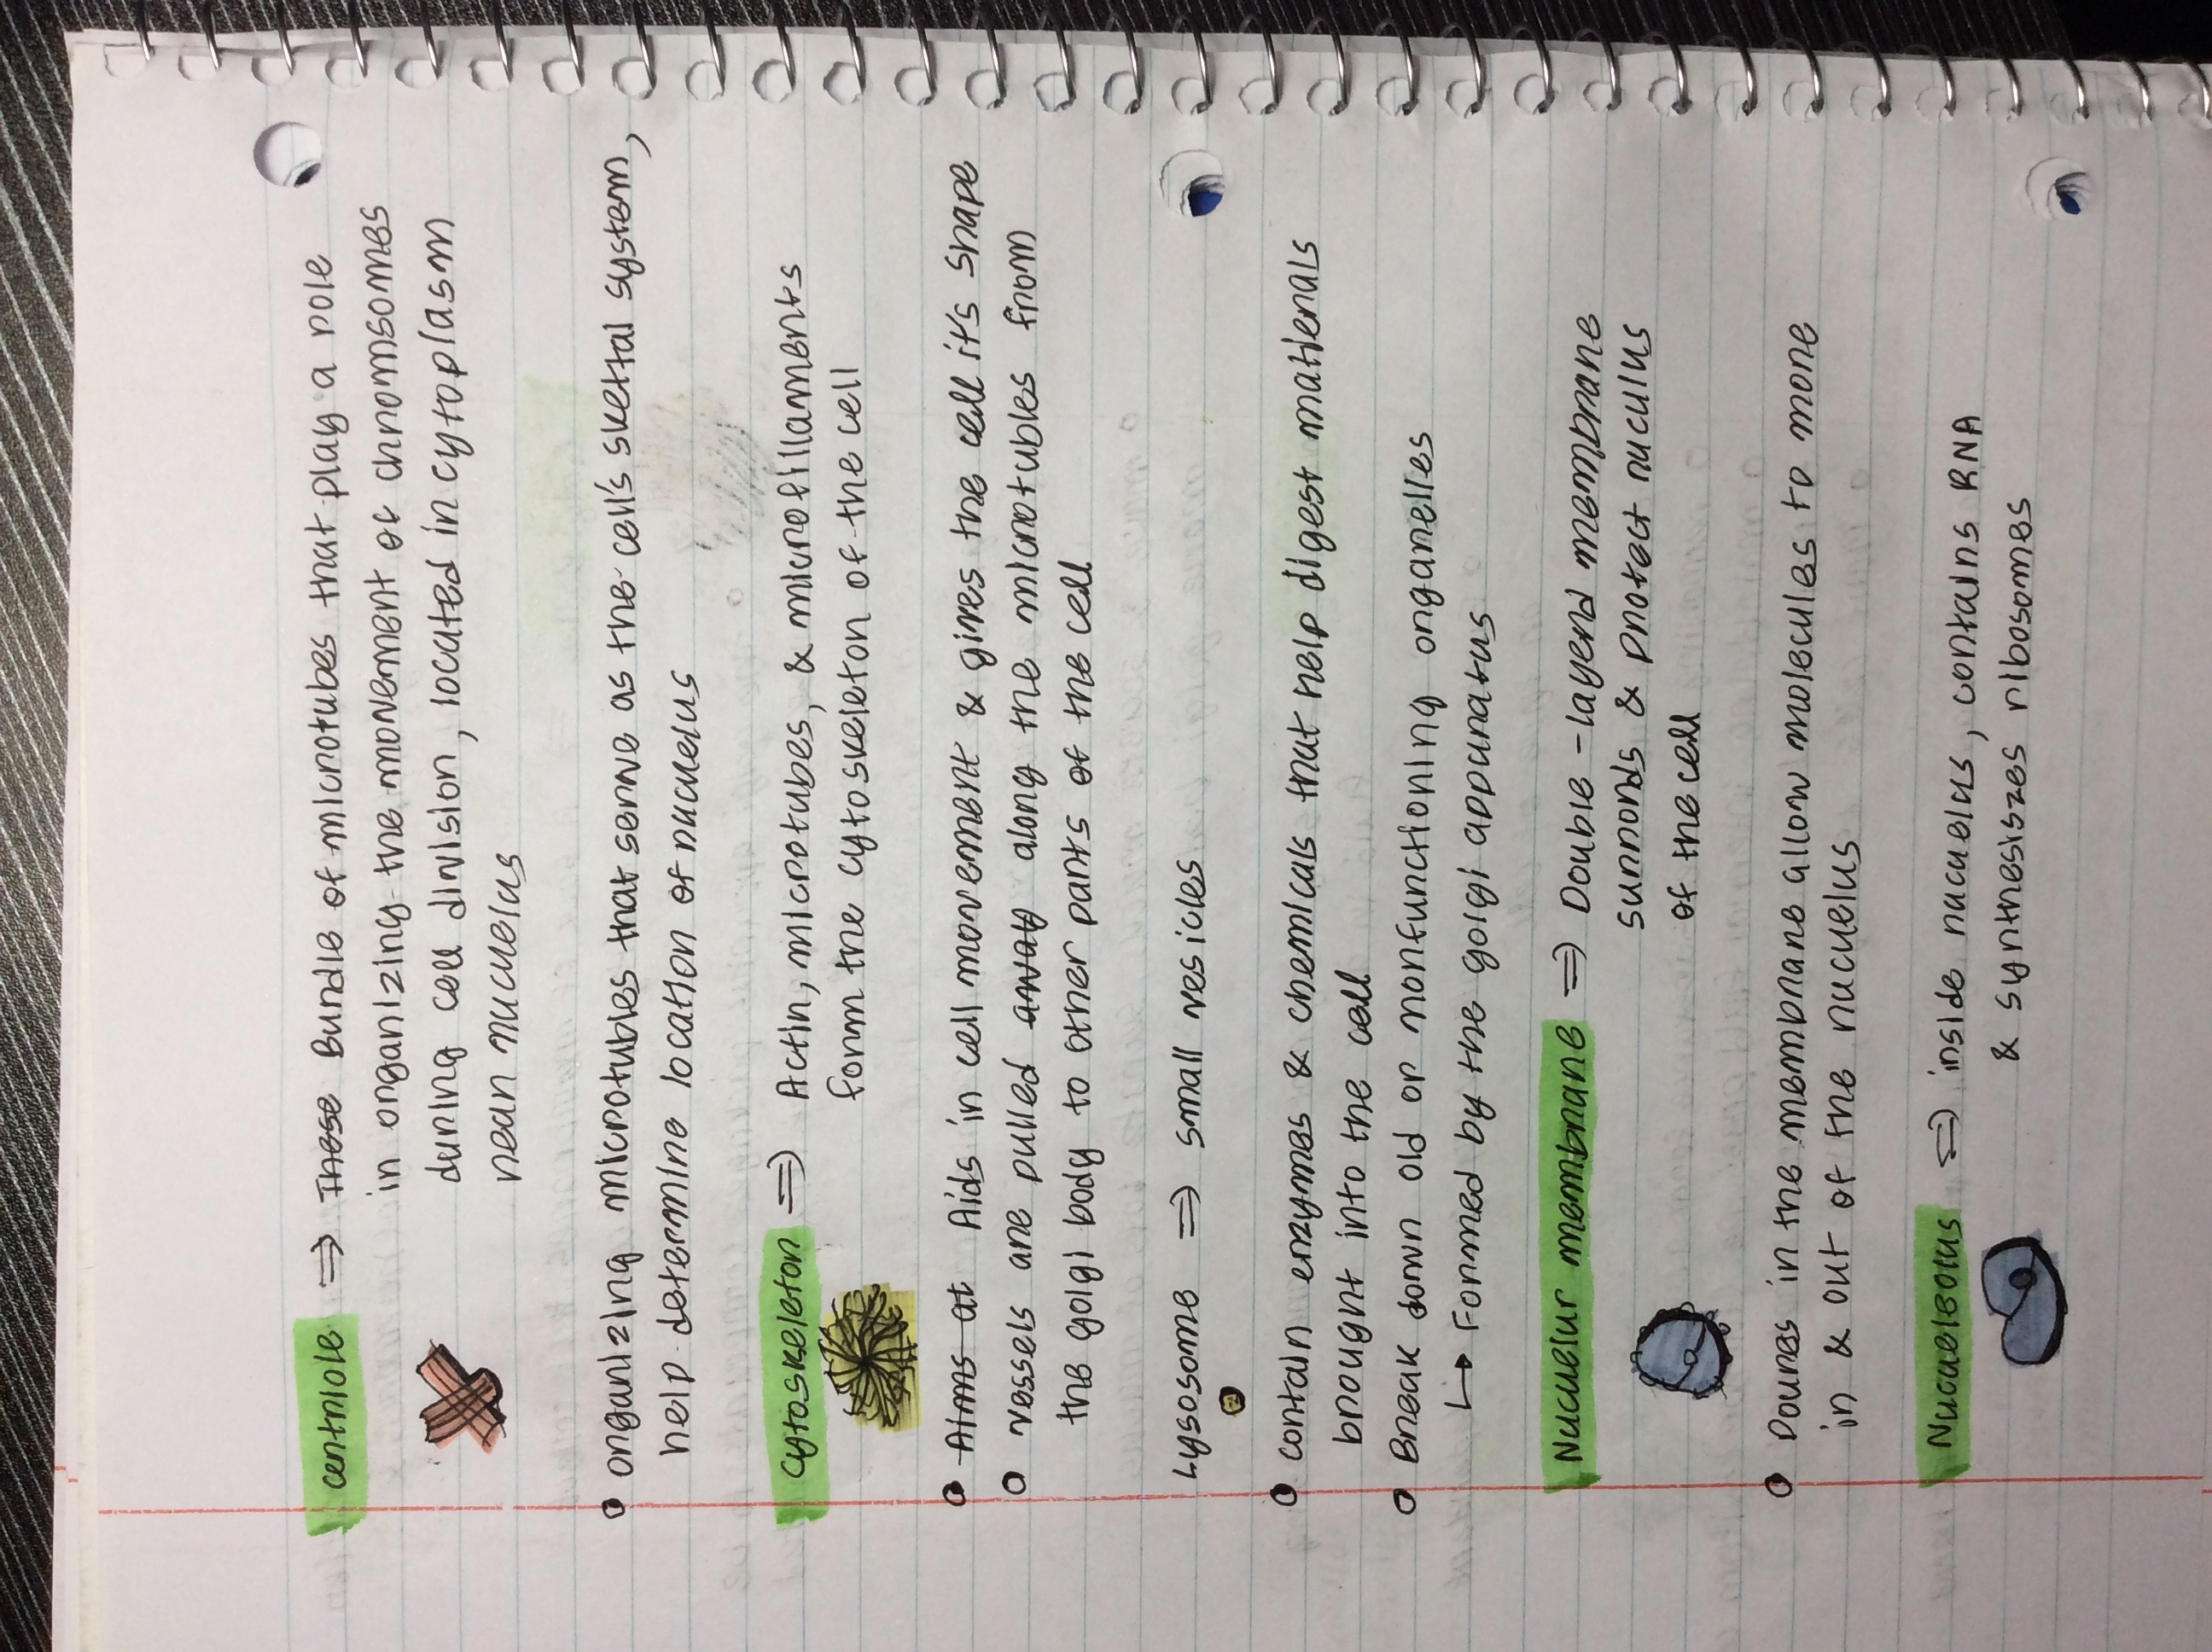 centriole ⇒ These Bundle of microtubes that play a role
in organizing the movement of chromsomes
during cell division, located in cytoplasm
near nucuelus
• organizing microtubles that serve as the cell's sketal system,
help determine location of nucuelus
Cytoskeleton ⇒ Actin, microtubes, & microfillaments
form the cytoskeleton of the cell
• Aims at Aids in cell movement & gives the cell it's shape
○ vessels are pulled away along the microtubles from
the golgi body to other parts of the cell
Lysosome ⇒ small vesicles
• contain enzymes & chemicals that help digest matierials
brought into the cell
○ Break down old or nonfunctioning organelles
↳ Formed by the golgi appuratus
Nucuelur membrane ⇒ Double-layerd membrane
surronds & protect nuculus
of the cell
• Poures in the membrane allow molecules to more
in & out of the nucuelus
Nucueleous ⇒ inside nucuelus, contains RNA
& syntnesiszes ribosomes